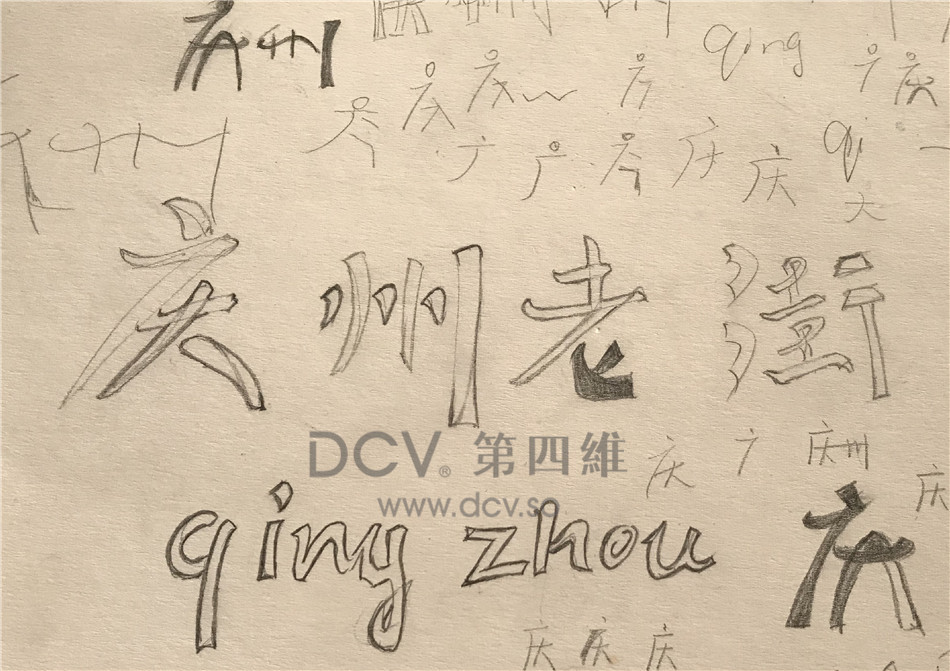 庆州
qing
庆 庆
庆 庆
qi
大
庆州老街
DCV® 第四維
www.dcv.so
庆 广 庆州
庆
qing zhou 庆
庆 庆 庆